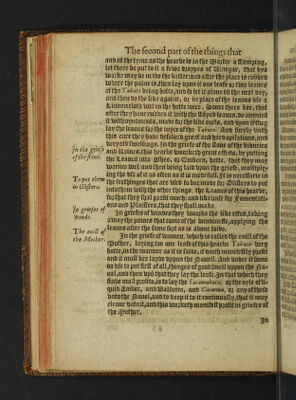 The second part of the things that
and at the tyme as the hearbe is in the Morter a stamping,
let there be put to it a fewe droppes of Vinegar, that hys
worke may be in the the better: and after the place is rubbed
where the paine is, then lay upon it one leafe or two leaues
of the Tabaco beeing hotte, and so let it alone till the next day,
and then do the like againe, or in place of the leaues vse a
Linnen cloth wet in the hotte iuice. Some there bee, that
after they haue rubbed it with the stamped leaues, do annoint
it with oyntments, made for the like euils, and vpon it they
lay the leaues or the iuyce of the Tabaco. And surely with
this cure they haue dissolued great and hard opilations, and
very old swellings.
In the griefe of the stone of the kidneies
and Reines, this hearbe worketh great effects, by putting
the Leaues into Ashes, or Embers, hotte, that they may
warme wel and then being laid vpon the griefe, multiply-
ing the vse of it as often as it is needfull. It is necessarie in
the seethinges that are vsed to bee made for Glisters to put
into them with the other things, the Leaues of this hearbe,
for that they shall profit much: and likewise for Fomentati-
ons and Plaisters, that they shall make.
In the griefe
of the stone.
To put them
in Glisters.
In griefes of windes they worke the like effect, taking
away the paines that come of the windinesse, applying the
leaues after the same sort as is aboue saide.
In griefes of
winds.
In the griefe of women, which is called the euill of the
Mother, laying too one leafe of this hearbe Tabaco very
hotte, in the manner as it is saide, it doth manifestly profit
The euill of
the Mother.
and it must bee layde vppon the Nauell. And vnder it some
do vse to put first of all, thinges of good smell vppon the Na-
uel, and then vpon that they lay the leafe. In that which they
finde most profite, is to lay the Tacamahaca, or the oyle of li-
quid Amber, and Balsamo, and Caranna, or any of these
vnto the Nauel, and to keep it to it continually, that it may
cleaue vnto it, and this worketh manifest profit in griefes of
the Mother.
In